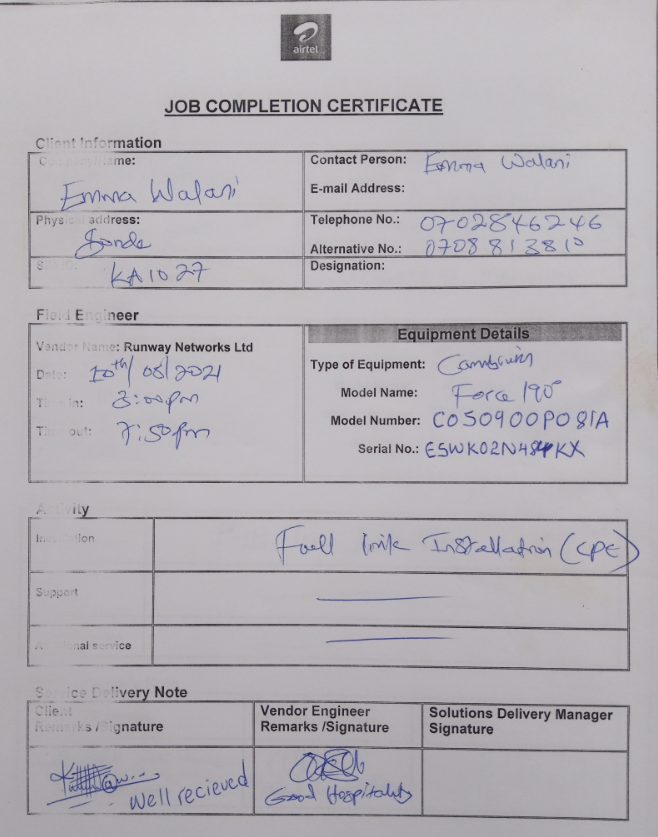 airtel
JOB COMPLETION CERTIFICATE
Client Information
Company Name:
Emma Walani
Contact Person: Emma Walani
E-mail Address:
Physical address:
Sonde
Telephone No.: 0702846246
Alternative No.: 0708813810
KA1027
Designation:
Field Engineer
Vendor Name: Runway Networks Ltd
Date: 10th/08/2021
Time in: 3:00pm
Time out: 7:50pm
Equipment Details
Type of Equipment: Cambium
Model Name: Force 190
Model Number: C050900P081A
Serial No.: ESWK02N484KX
Activity
Installation
Full link Installation (CPE)
Support
Additional service
Service Delivery Note
Client
Remarks /Signature
Vendor Engineer
Remarks /Signature
Solutions Delivery Manager
Signature
Well recieved
Good Hospitality